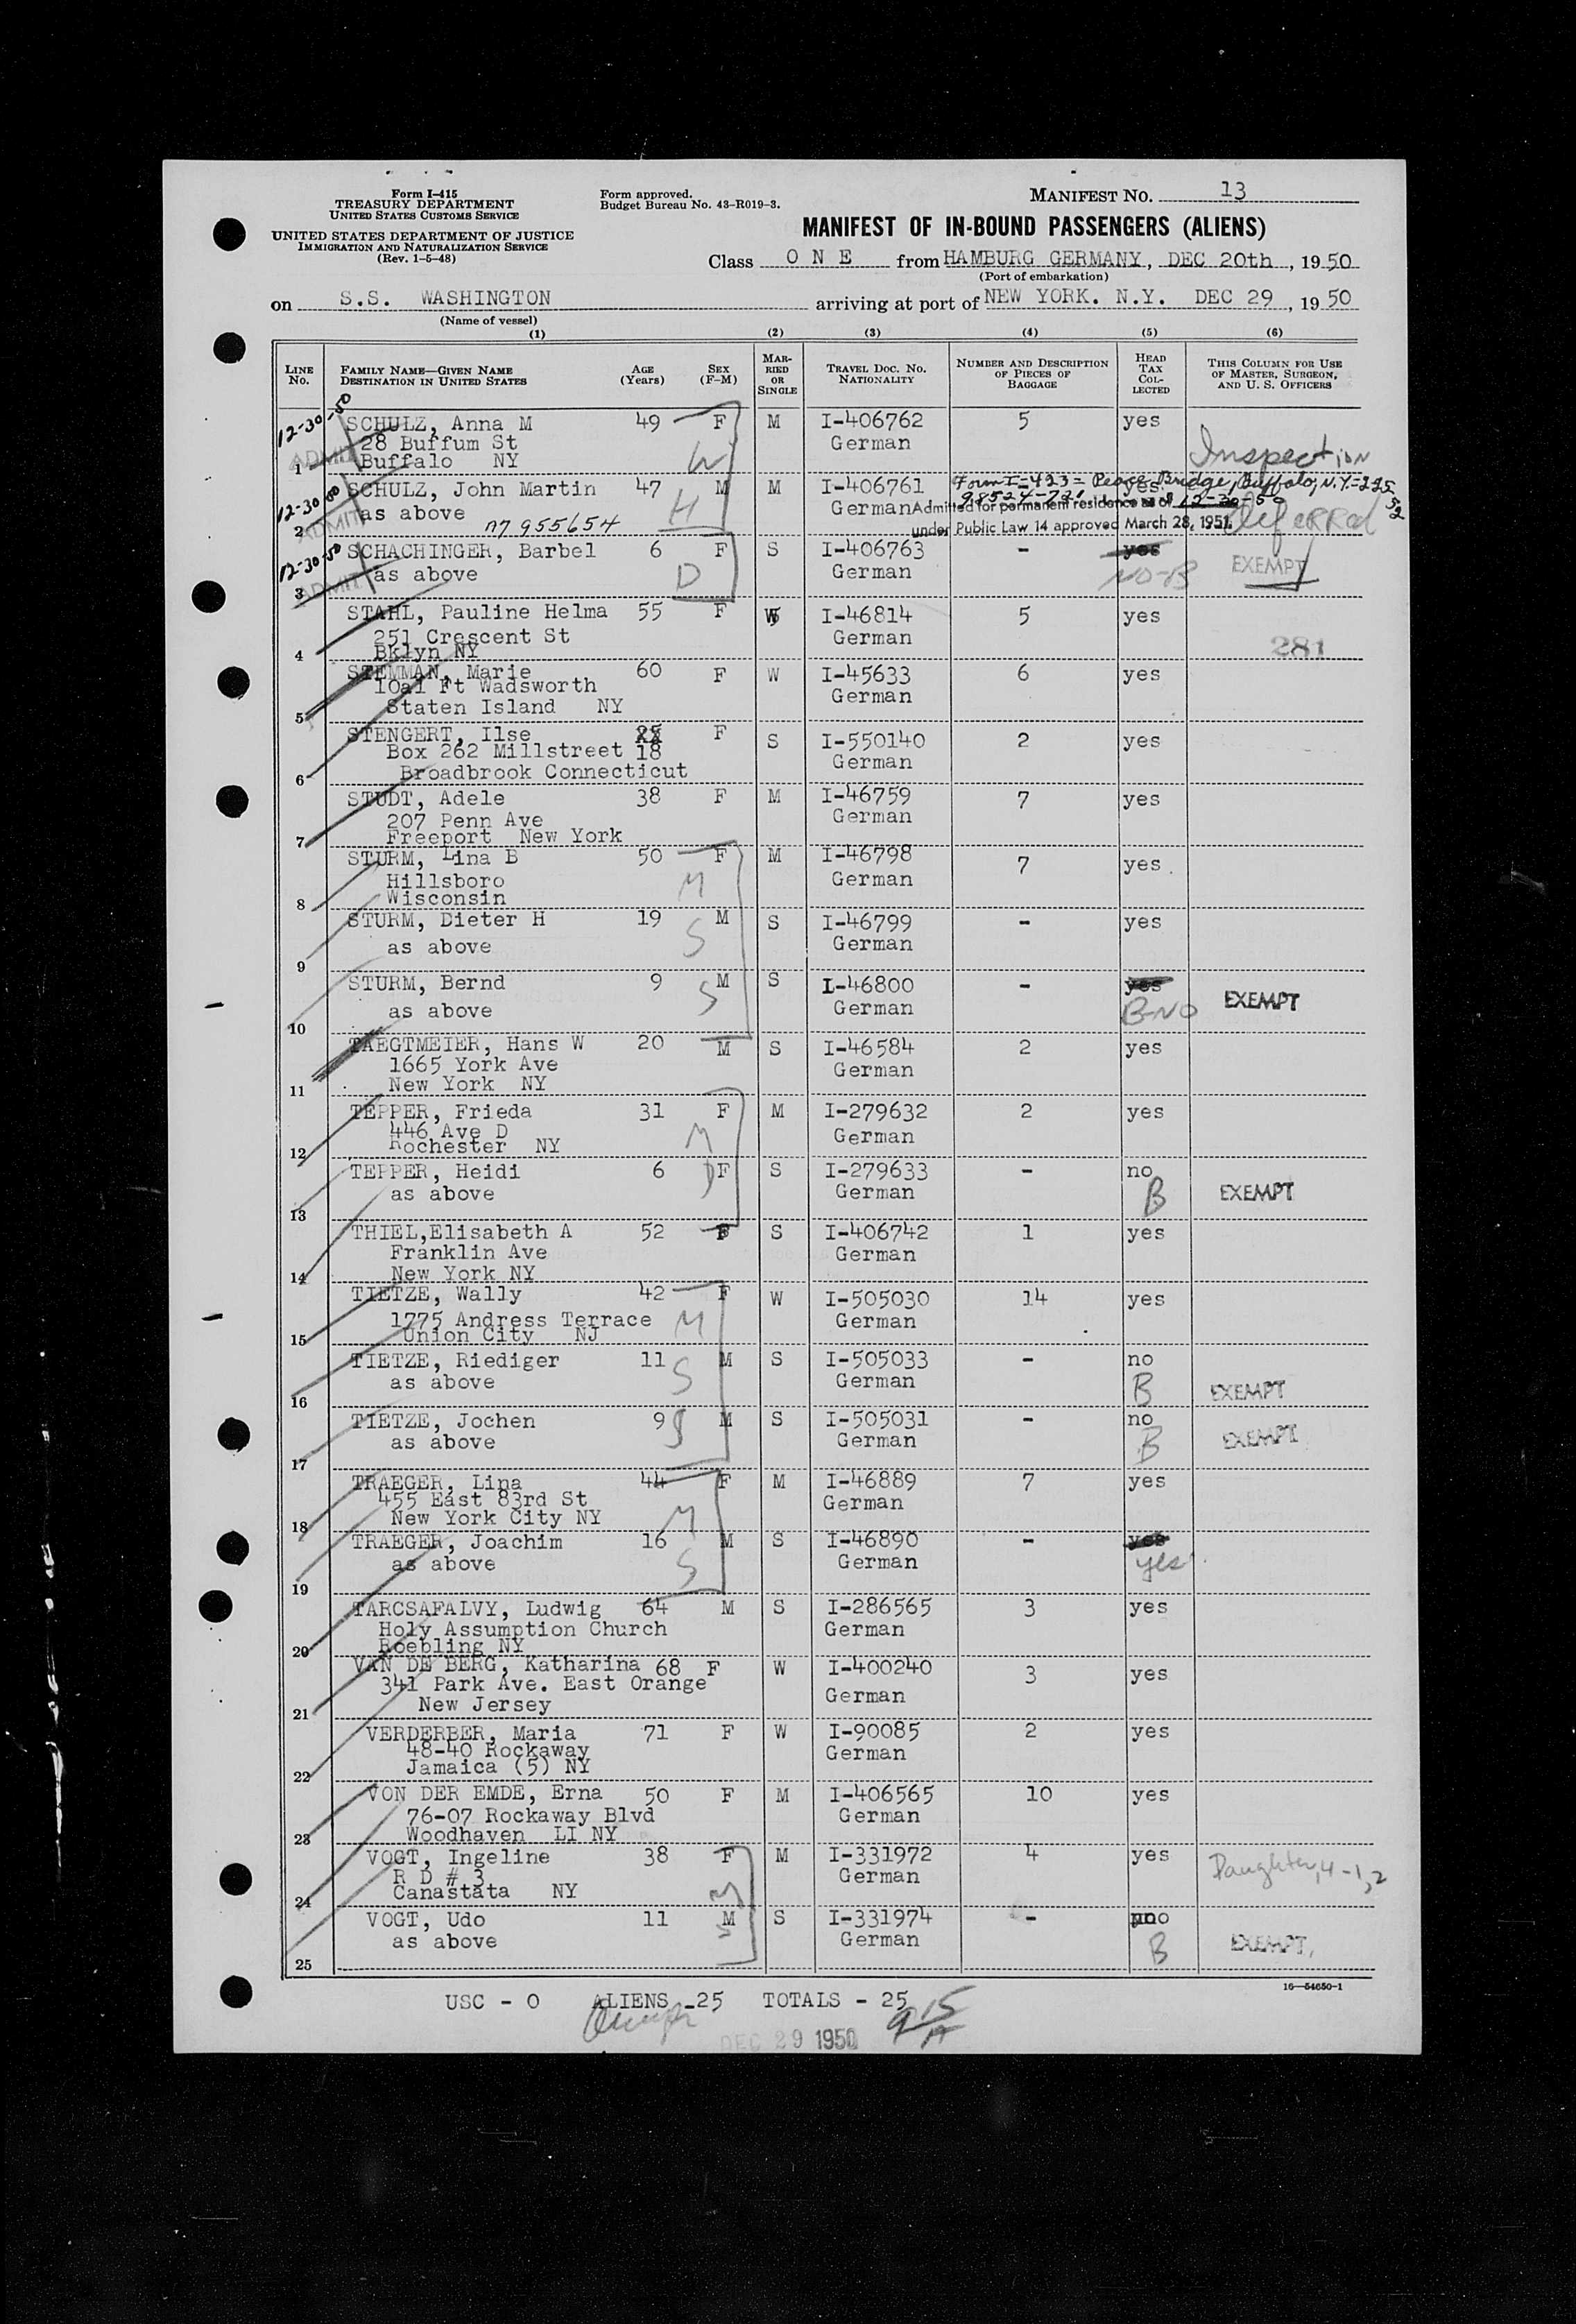 Form I-415
TREASURY DEPARTMENT
UNITED STATES CUSTOMS SERVICE
UNITED STATES DEPARTMENT OF JUSTICE
IMMIGRATION AND NATURALIZATION SERVICE
(Rev. 1-5-48)
Form approved.
Budget Bureau No. 43-R019-3.
MANIFEST NO. 13
MANIFEST OF IN-BOUND PASSENGERS (ALIENS)
Class O N E from HAMBURG GERMANY, DEC 20th, 1950
(Port of embarkation)
on S.S. WASHINGTON arriving at port of NEW YORK. N.Y. DEC 29, 1950
(Name of vessel)
(1) (2) (3) (4) (5) (6)
LINE No. FAMILY NAME—GIVEN NAME DESTINATION IN UNITED STATES AGE (Years) SEX (F-M) MARRIED OR SINGLE TRAVEL DOC. NO. NATIONALITY NUMBER AND DESCRIPTION OF PIECES OF BAGGAGE HEAD TAX COLLECTED THIS COLUMN FOR USE OF MASTER, SURGEON, AND U. S. OFFICERS
12-30-50 SCHULZ, Anna M 49 F M I-406762 5 yes
28 Buffum St German
1 ADMIT Buffalo NY W Inspection
12-30-50 SCHULZ, John Martin 47 M M I-406761 yes Form I-423 = Peace Bridge, Buffalo, N.Y.
as above H German Admitted for permanent residence as of 12-30-50
2 ADMIT A7 955654 under Public Law 14 approved March 28, 1951. Deferred
12-30-50 SCHACHINGER, Barbel 6 F S I-406763 - yes
as above D German NO-B EXEMPT
3 ADMIT
STAHL, Pauline Helma 55 F W I-46814 5 yes
251 Crescent St German
4 Bklyn NY 281
STEMMAN, Marie 60 F W I-45633 6 yes
10a1 Ft Wadsworth German
5 Staten Island NY
STENGERT, Ilse F S I-550140 2 yes
Box 262 Millstreet 18 German
6 Broadbrook Connecticut
STUDT, Adele 38 F M I-46759 7 yes
207 Penn Ave German
7 Freeport New York
STURM, Lina B 50 F M I-46798 7 yes
Hillsboro M German
8 Wisconsin
STURM, Dieter H 19 M S I-46799 - yes
as above S German
9
STURM, Bernd 9 M S I-46800 - yes
as above S German B-NO EXEMPT
10
TAEGTMEIER, Hans W 20 M S I-46584 2 yes
1665 York Ave German
11 New York NY
TEPPER, Frieda 31 F M I-279632 2 yes
446 Ave D M German
12 Rochester NY
TEPPER, Heidi 6 F S I-279633 - no
as above D German B EXEMPT
13
THIEL,Elisabeth A 52 F S I-406742 1 yes
Franklin Ave German
14 New York NY
TIETZE, Wally 42 F W I-505030 14 yes
1775 Andress Terrace M German
15 Union City NJ
TIETZE, Riediger 11 M S I-505033 - no
as above S German B EXEMPT
16
TIETZE, Jochen 9 M S I-505031 - no
as above S German B EXEMPT
17
TRAEGER, Lina 44 F M I-46889 7 yes
455 East 83rd St German
18 New York City NY M
TRAEGER, Joachim 16 M S I-46890 - yes
as above S German yes
19
TARCSAFALVY, Ludwig 64 M S I-286565 3 yes
Holy Assumption Church German
20 Roebling NY
VAN DE BERG, Katharina 68 F W I-400240 3 yes
341 Park Ave. East Orange German
21 New Jersey
VERDERBER, Maria 71 F W I-90085 2 yes
48-40 Rockaway German
22 Jamaica (5) NY
VON DER EMDE, Erna 50 F M I-406565 10 yes
76-07 Rockaway Blvd German
23 Woodhaven LI NY
VOGT, Ingeline 38 F M I-331972 4 yes Daughter, 4-1,2
R D # 3 German
24 Canastata NY M
VOGT, Udo 11 M S I-331974 - no
as above S German B EXEMPT
25
16—54650-1
USC - 0 ALIENS -25 TOTALS - 25
DEC 29 1950